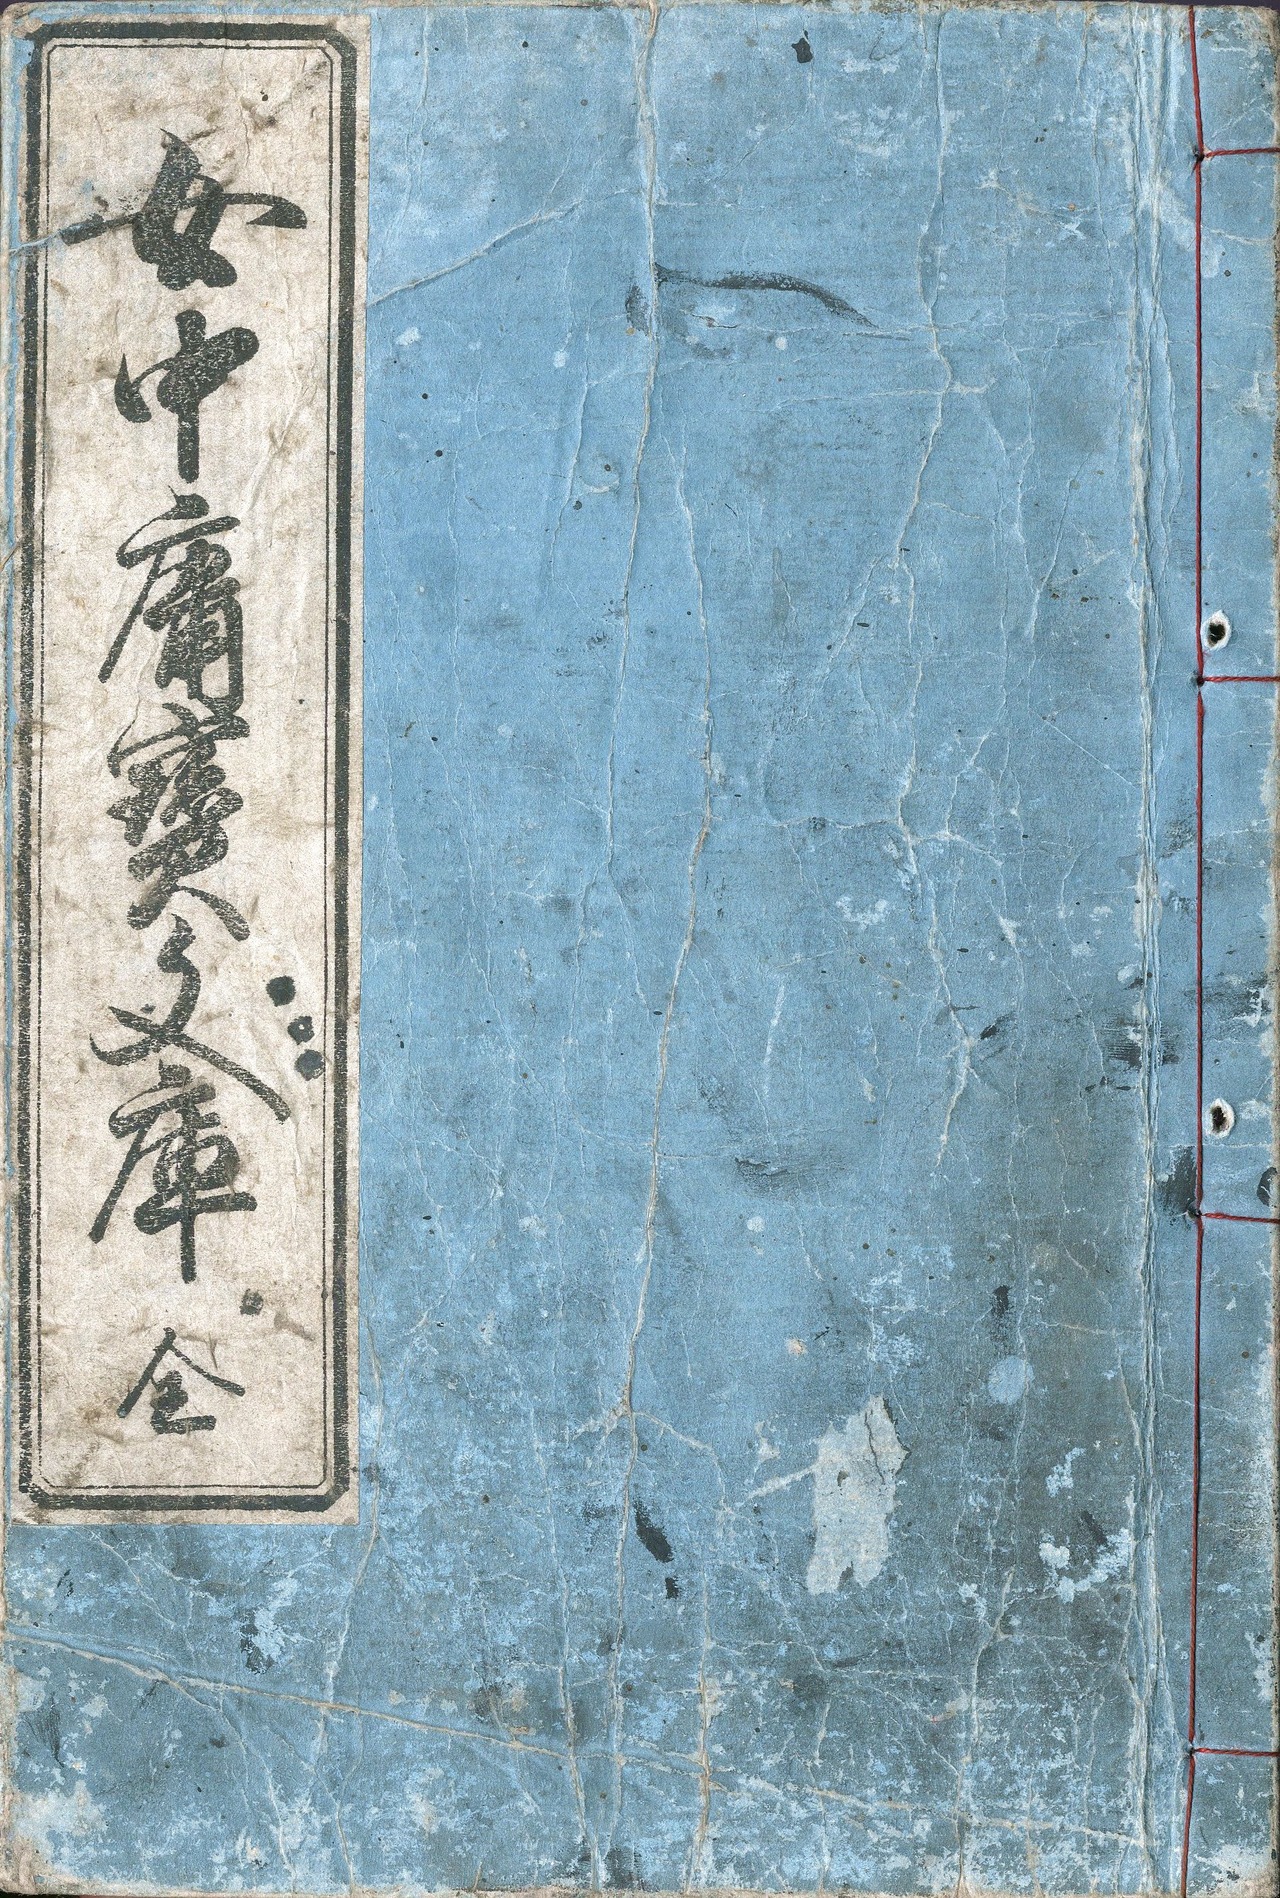 女中庸寶文庫 全